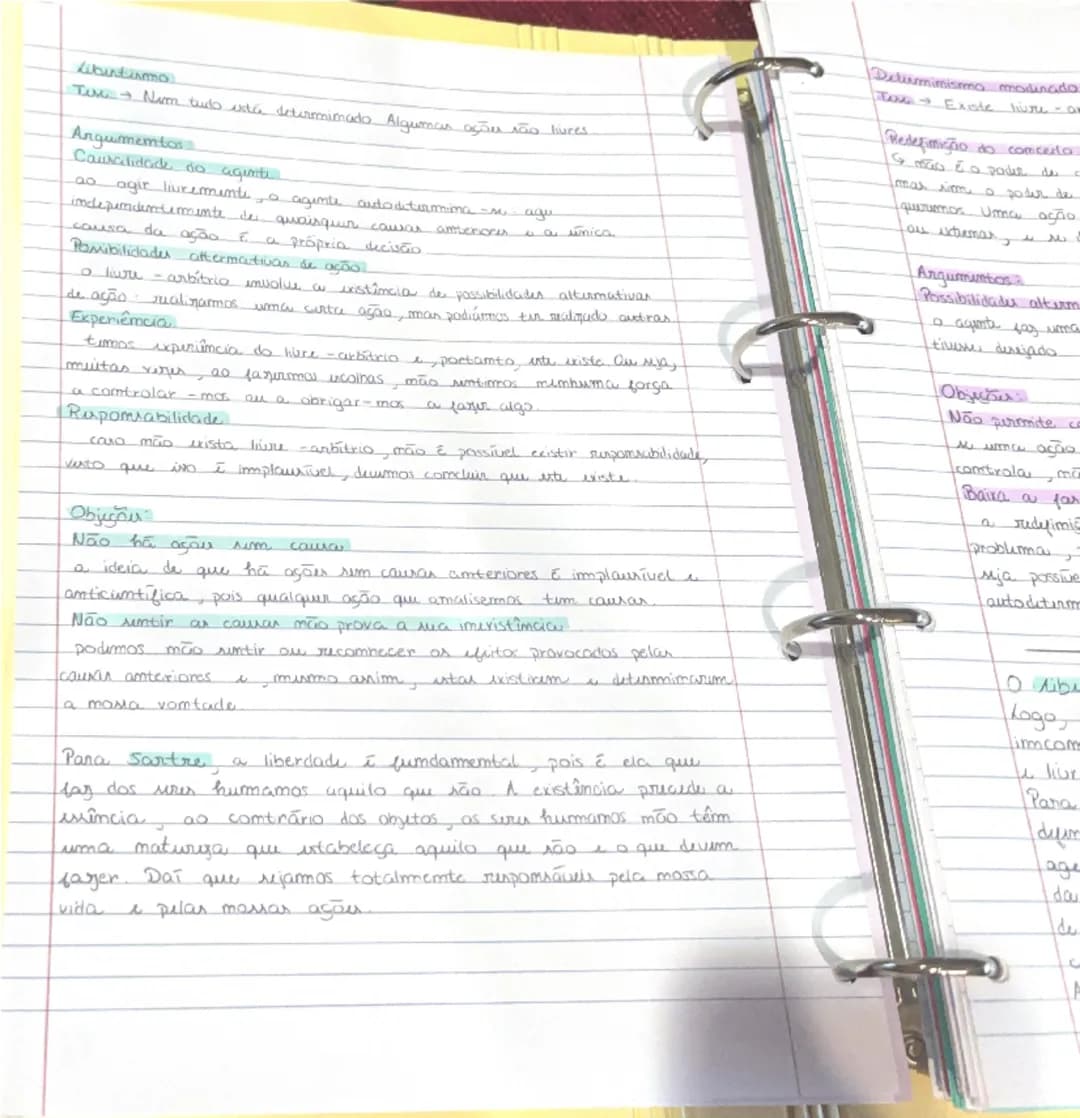 Libertismo
Tese → Nem tudo está determinado. Algumas ações são livres.
Argumentos
Causalidade do agente
ao agir livremente, o agente autodetermina-se: age
independentemente de quaisquer causas anteriores e a única
causa da ação é a própria decisão
Possibilidades alternativas de ação
o livre-arbítrio envolve a existência de possibilidades alternativas
de ação: realizarmos uma certa ação, mas podíamos ter realizado outras
Experiência
temos experiência do livre-arbítrio e, portanto, este existe. Ou seja,
muitas vezes, ao fazermos escolhas, não sentimos nenhuma força
a controlar-nos ou a obrigar-nos a fazer algo.
Responsabilidade
caso não exista livre-arbítrio, não é possível existir responsabilidade,
visto que isso é implausível, devemos concluir que este existe.
Objeções:
Não há ações sem causas
a ideia de que há ações sem causas anteriores é implausível e
anticientífica, pois qualquer ação que analisemos tem causas.
Não sentir as causas não prova a sua inexistência
podemos não sentir ou reconhecer os efeitos provocados pelas
causas anteriores e, mesmo assim, estas existirem e determinarem
a nossa vontade.
Para Sartre, a liberdade é fundamental, pois é ela que
faz dos seres humanos aquilo que são. A existência precede a
essência, ao contrário dos objetos, os seres humanos não têm
uma natureza que estabeleça aquilo que são e o que devem
fazer. Daí que sejamos totalmente responsáveis pela nossa
vida e pelas nossas ações.
Determinismo moderado
Tese → Existe livre-ar
Redefinição do conceito
↳ não é o poder de
mas sim o poder de
queremos. Uma ação
ou externas, e se
Argumentos:
Possibilidades altern
o agente faz uma
tivesse desejado
Objeções:
Não permite
se uma ação
controla, nã
Baixa a fas
a redefiniç
problema,
seja possíve
autodeterm
O libe
Logo,
incom
e livr
Para
defin
age
da
de